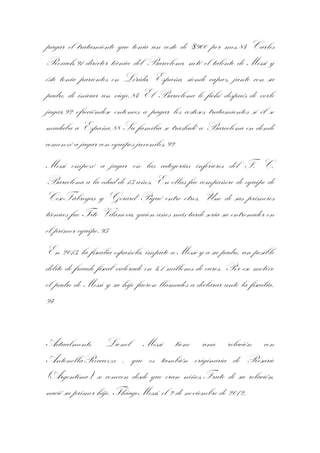 pagar el tratamiento que tenía un costo de $900 por mes.84 Carlos
Rexach,91 director técnico del Barcelona, notó el talento de Messi y
éste tenía parientes en Lérida, España, siendo capaz, junto con su
padre, de iniciar un viaje.84 El Barcelona lo fichó después de verlo
jugar,92 ofreciéndose entonces a pagar los costosos tratamientos si él se
mudaba a España.88 Su familia se trasladó a Barcelona en donde
comenzó a jugar con equipos juveniles.92
Messi empezó a jugar en las categorías inferiores del F. C.
Barcelona a la edad de 13 años. En ellas fue compañero de equipo de
Cesc Fàbregas y Gerard Piqué entre otros. Uno de sus primeros
técnicos fue Tito Vilanova, quién años más tarde sería su entrenador en
el primer equipo.93
En 2013, la fiscalía española, imputo a Messi y a su padre, un posible
delito de fraude fiscal valorado en 4,1 millones de euros. Por ese motivo
el padre de Messi y su hijo fueron llamados a declarar ante la fiscalía.
94
Actualmente, Lionel Messi tiene una relación con
Antonella Roccuzzo , que es también originaria de Rosario
(Argentina), se conocen desde que eran niños. Fruto de su relación,
nació su primer hijo, Thiago Messi, el 2 de noviembre de 2012.